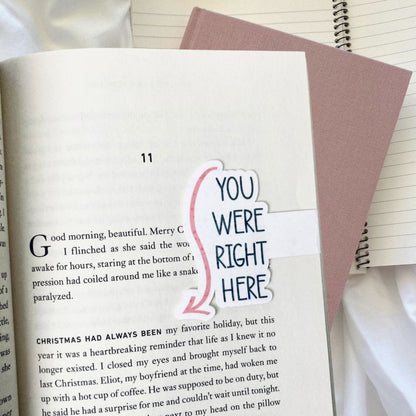 11
YOU
WERE
RIGHT
HERE
Good morning, beautiful. Merry C
I flinched as she said the wor
awake for hours, staring at the bottom of
pression had coiled around me like a snake
paralyzed.
CHRISTMAS HAD ALWAYS BEEN my favorite holiday, but this
year it was a heartbreaking reminder that life as I knew it no
longer existed. I closed my eyes and brought myself back to
last Christmas. Eliot, my boyfriend at the time, had woken me
up with a hot cup of coffee. He was supposed to be on duty, but
he said he had a surprise for me and couldn't wait until tonight.
next to my head on the pillow